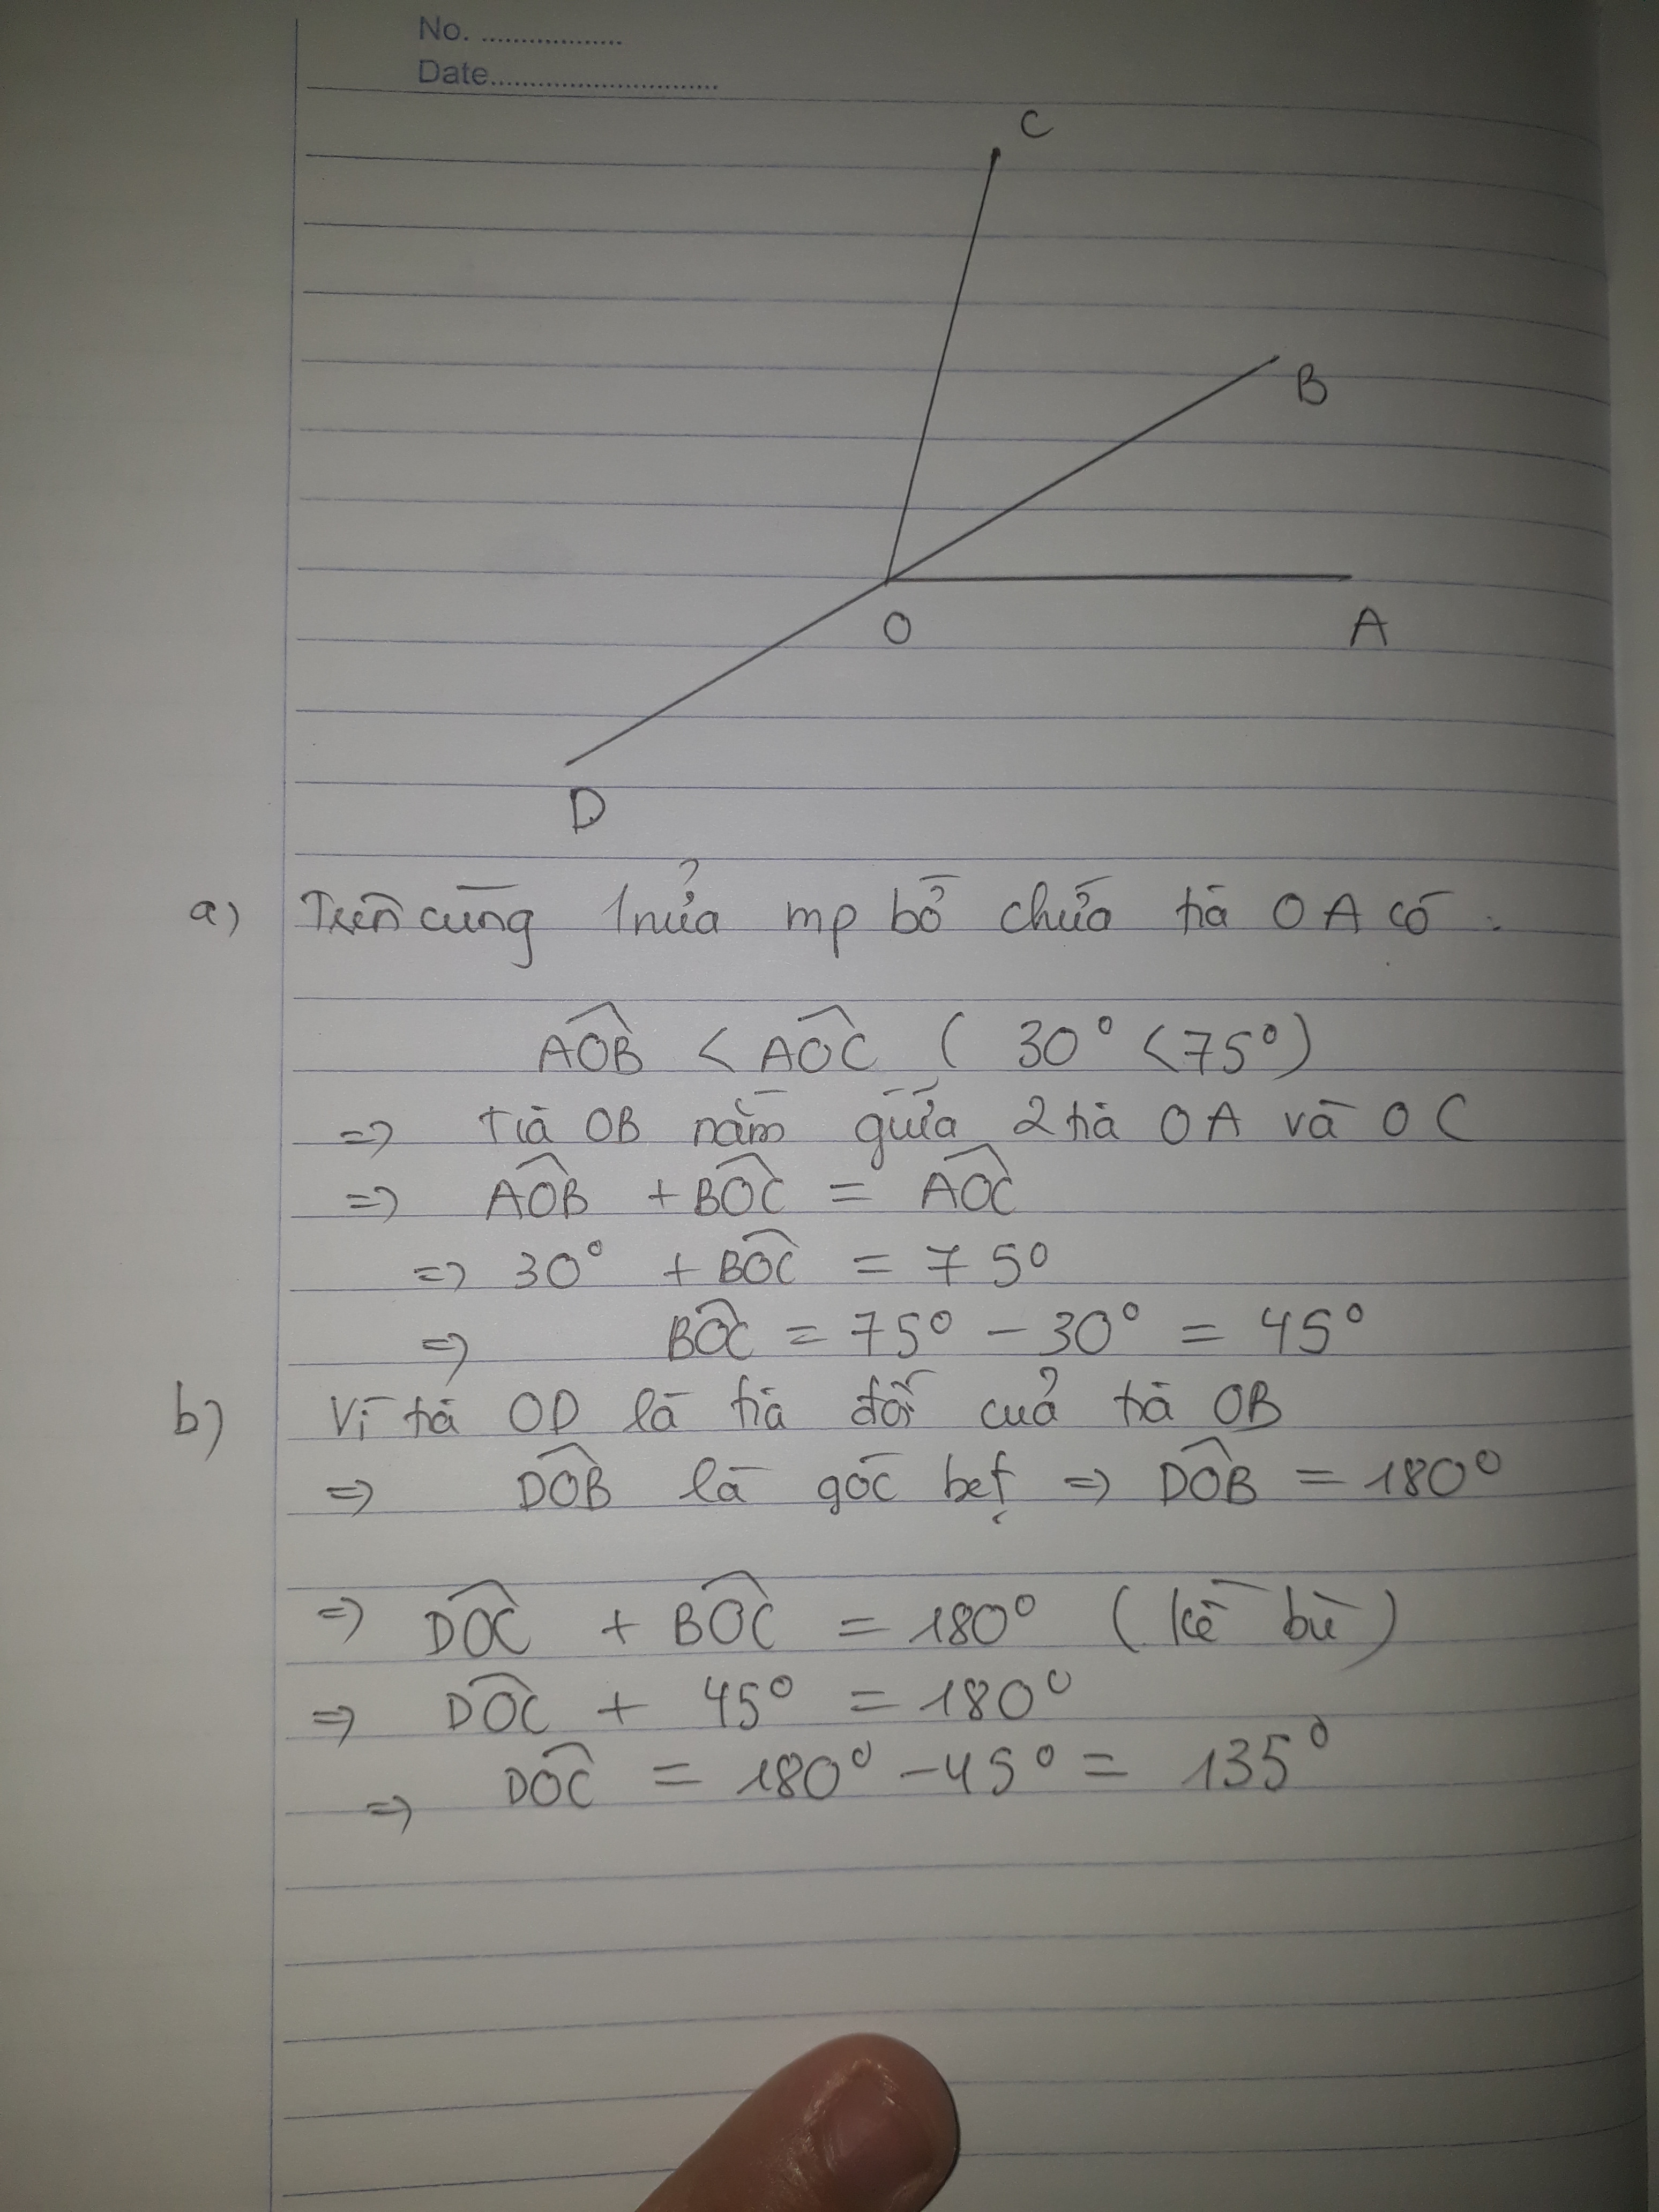 No. ..................
Date.............................
C
B
O
A
D
a) Trên cùng 1 nửa mp bờ chứa tia OA có :
AOB < AOC ( 30° < 75° )
=> Tia OB nằm giữa 2 tia OA và OC
=> AOB + BOC = AOC
=> 30° + BOC = 75°
=> BOC = 75° - 30° = 45°
b) Vì tia OD là tia đối của tia OB
=> DOB là góc bẹt => DOB = 180°
=> DOC + BOC = 180° ( kề bù )
=> DOC + 45° = 180°
=> DOC = 180° - 45° = 135°